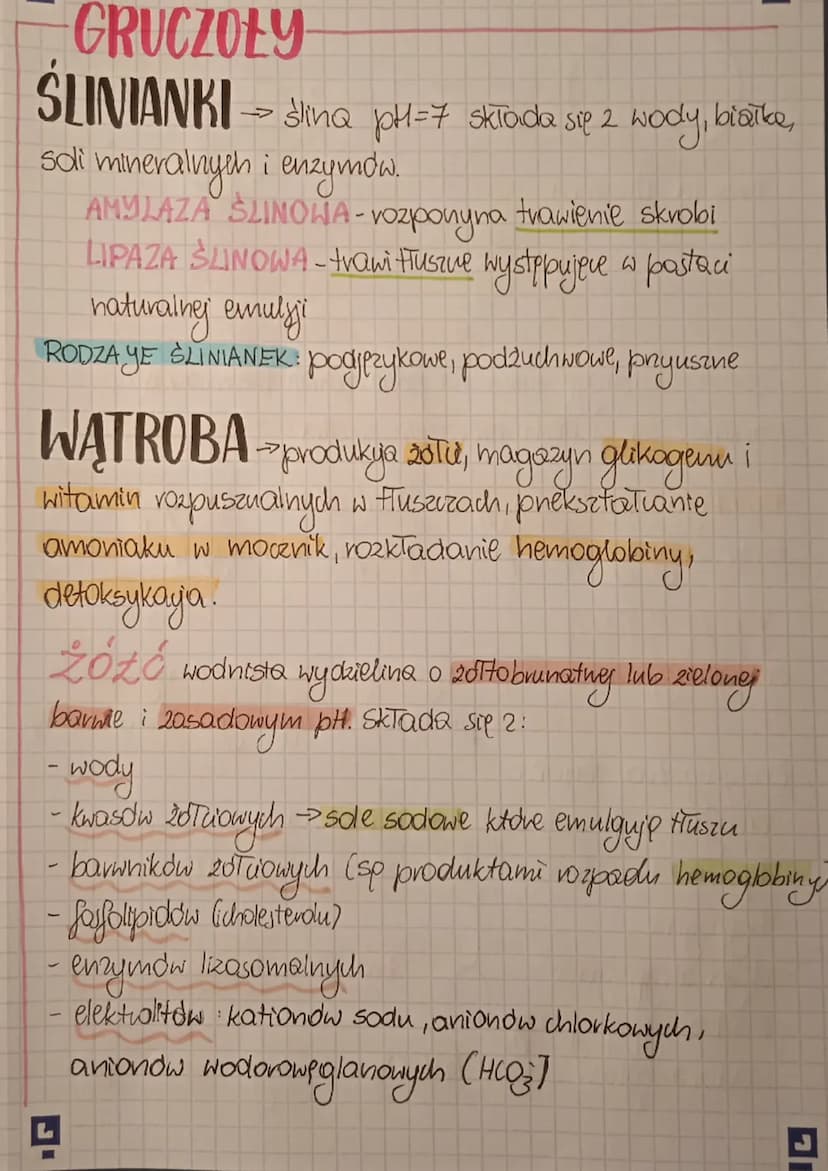 GRUCZOŁY
ŚLINIANKI → ślina pH=7 składa się z wody, białka,
soli mineralnych i enzymów.
AMYLAZA ŚLINOWA - rozpoczyna trawienie skrobi
LIPAZA ŚLINOWA - trawi tłuszcze występujące w postaci
naturalnej emulsji
RODZAJE ŚLINIANEK: podjęzykowe, podżuchwowe, przyuszne
WĄTROBA → produkcja żółci, magazyn glikogenu i
witamin rozpuszczalnych w tłuszczach, przekształcanie
amoniaku w mocznik, rozkładanie hemoglobiny,
detoksykacja.
ŻÓŁĆ wodnista wydzielina o żółtobrunatnej lub zielonej
barwie i zasadowym pH. Składa się z:
- wody
- kwasów żółciowych → sole sodowe które emulgują tłuszcz
- barwników żółciowych (są produktami rozpadu hemoglobiny)
- fosfolipidów (i cholesterolu)
- enzymów lizosomalnych
- elektrolitów : kationów sodu, anionów chlorkowych,
anionów wodorowęglanowych (HCO₃⁻)